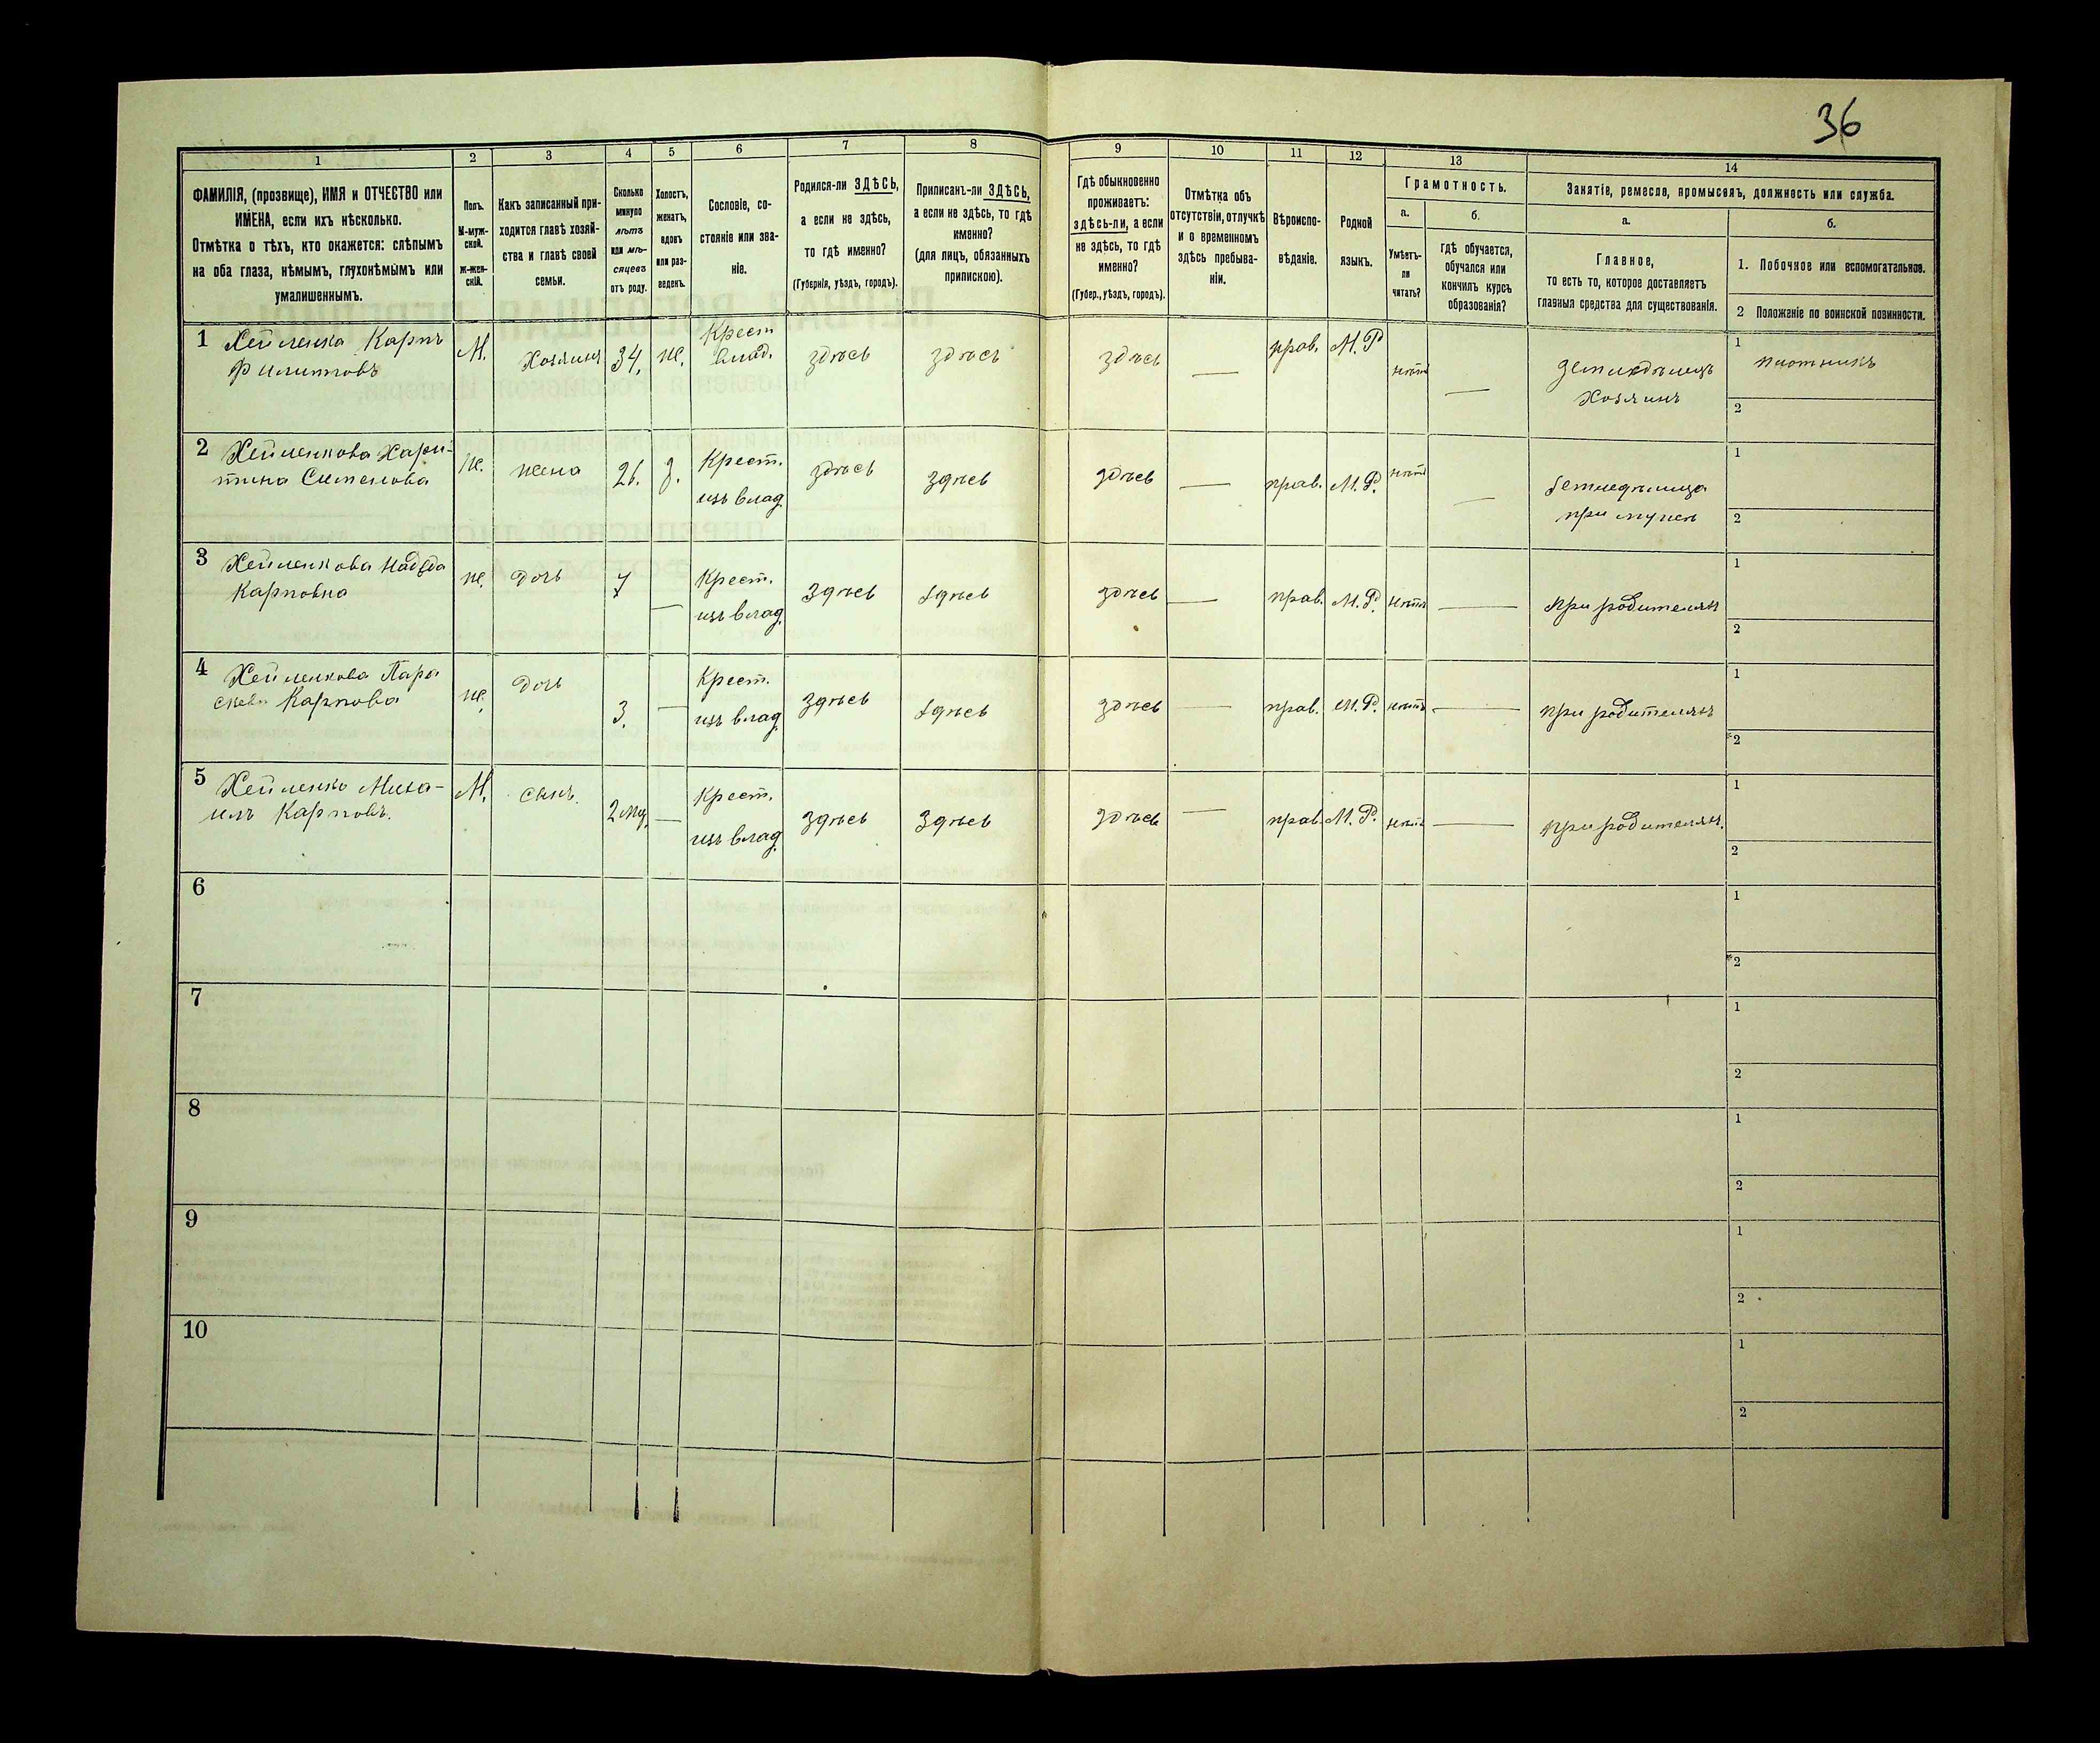 36
1 2 3 4 5 6 7 8 9 10 11 12 13 14
ФАМИЛІЯ, (прозвище), ИМЯ и ОТЧЕСТВО или
ИМЕНА, если ихъ нѣсколько.
Отмѣтка о тѣхъ, кто окажется: слѣпымъ
на оба глаза, нѣмымъ, глухонѣмымъ или
умалишеннымъ.
Полъ.
М-муж-
ской.
ж-жен-
скій.
Какъ записанный при-
ходится главѣ хозяй-
ства и главѣ своей
семьи.
Сколько
минуло
лѣтъ
или мѣ-
сяцевъ
отъ роду.
Холостъ,
женатъ,
вдовъ
или раз-
веденъ.
Сословіе, со-
стояніе или зва-
ніе.
Родился-ли ЗДѢСЬ,
а если не здѣсь,
то гдѣ именно?
(Губернія, уѣздъ, городъ).
Приписанъ-ли ЗДѢСЬ,
а если не здѣсь, то гдѣ
именно?
(для лицъ, обязанныхъ
припискою).
Гдѣ обыкновенно
проживаетъ:
здѣсь-ли, а если
не здѣсь, то гдѣ
именно?
(Губер., уѣздъ, городъ).
Отмѣтка объ
отсутствіи, отлучкѣ
и о временномъ
здѣсь пребыва-
ніи.
Вѣроиспо-
вѣданіе.
Родной
языкъ.
Грамотность.
а.
Умѣетъ-
ли
читать?
б.
гдѣ обучается,
обучался или
кончилъ курсъ
образованія?
Занятіе, ремесло, промыселъ, должность или служба.
а.
Главное,
то есть то, которое доставляетъ
главныя средства для существованія.
б.
1. Побочное или вспомогательное.
2 Положеніе по воинской повинности.
1 Хейленко Карпъ
Филипповъ
М. Хозяинъ 34. ж. Крест
влад. здѣсь здѣсь здѣсь — прав. М. Р нѣтъ —
земледѣлецъ
Хозяинъ
1 плотникъ
2
2 Хейленкова Хари-
тина Сименова
ж. жена 26. з. Крест.
изъ влад. здѣсь здѣсь здѣсь — прав. М. Р. нѣтъ —
земледѣлица
при мужѣ
1
2
3 Хейленкова Надежда
Карповна
ж. дочь 7 — Крест.
изъ влад. здѣсь здѣсь здѣсь — прав. М. Р. нѣтъ — при родителях
1
2
4 Хейленкова Пара
скева Карпова
ж. дочь 3. — Крест.
изъ влад. здѣсь здѣсь здѣсь — прав. М. Р. нѣтъ — при родителях
1
2
5 Хейленко Миха-
илъ Карповъ.
М. сынъ. 2 мц. — Крест.
изъ влад. здѣсь здѣсь здѣсь — прав. М. Р. нѣтъ — при родителях.
1
2
6
1
2
7
1
2
8
1
2
9
1
2
10
1
2